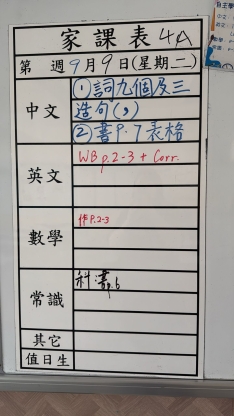 家課表 4A
第 週 9月9日(星期二)
中文
①詞九個及三
造句(3)
②書P.7表格
英文
WB p.2-3 + Corr.
數學
作P.2-3
常識
科書p.6
其它
值日生